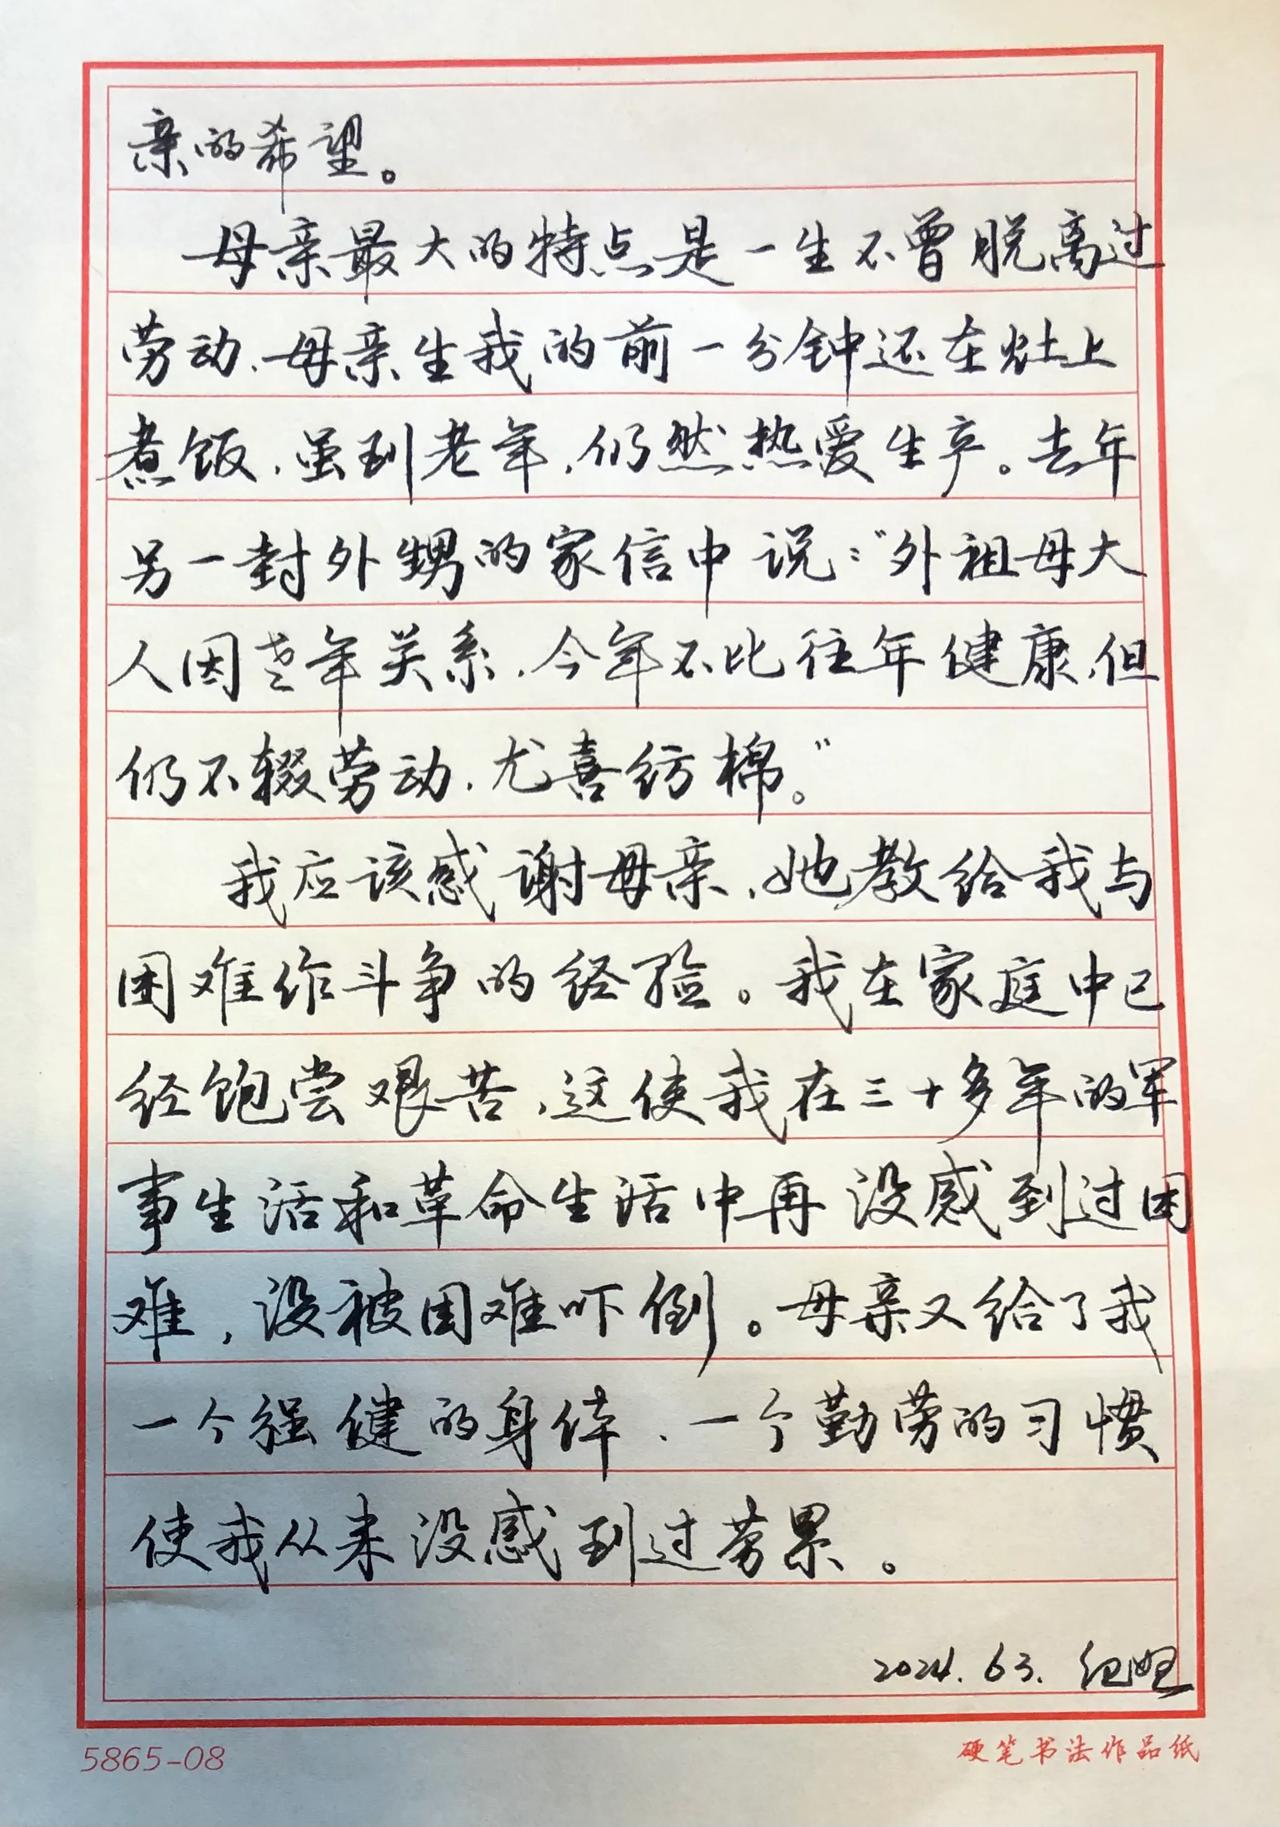 亲的希望。
母亲最大的特点是一生不曾脱离过
劳动、母亲生我的前一分钟还在灶上
煮饭，虽到老年，仍然热爱生产。去年
另一封外甥的家信中说：“外祖母大
人因老年关系，今年不比往年健康，但
仍不辍劳动，尤喜纺棉。”
我应该感谢母亲，她教给我与
困难作斗争的经验。我在家庭中已
经饱尝艰苦，这使我在三十多年的军
事生活和革命生活中再没感到过困
难，没被困难吓倒。母亲又给了我
一个强健的身体、一个勤劳的习惯
使我从来没感到过劳累。
2024.6.3.
5865-08
硬笔书法作品纸